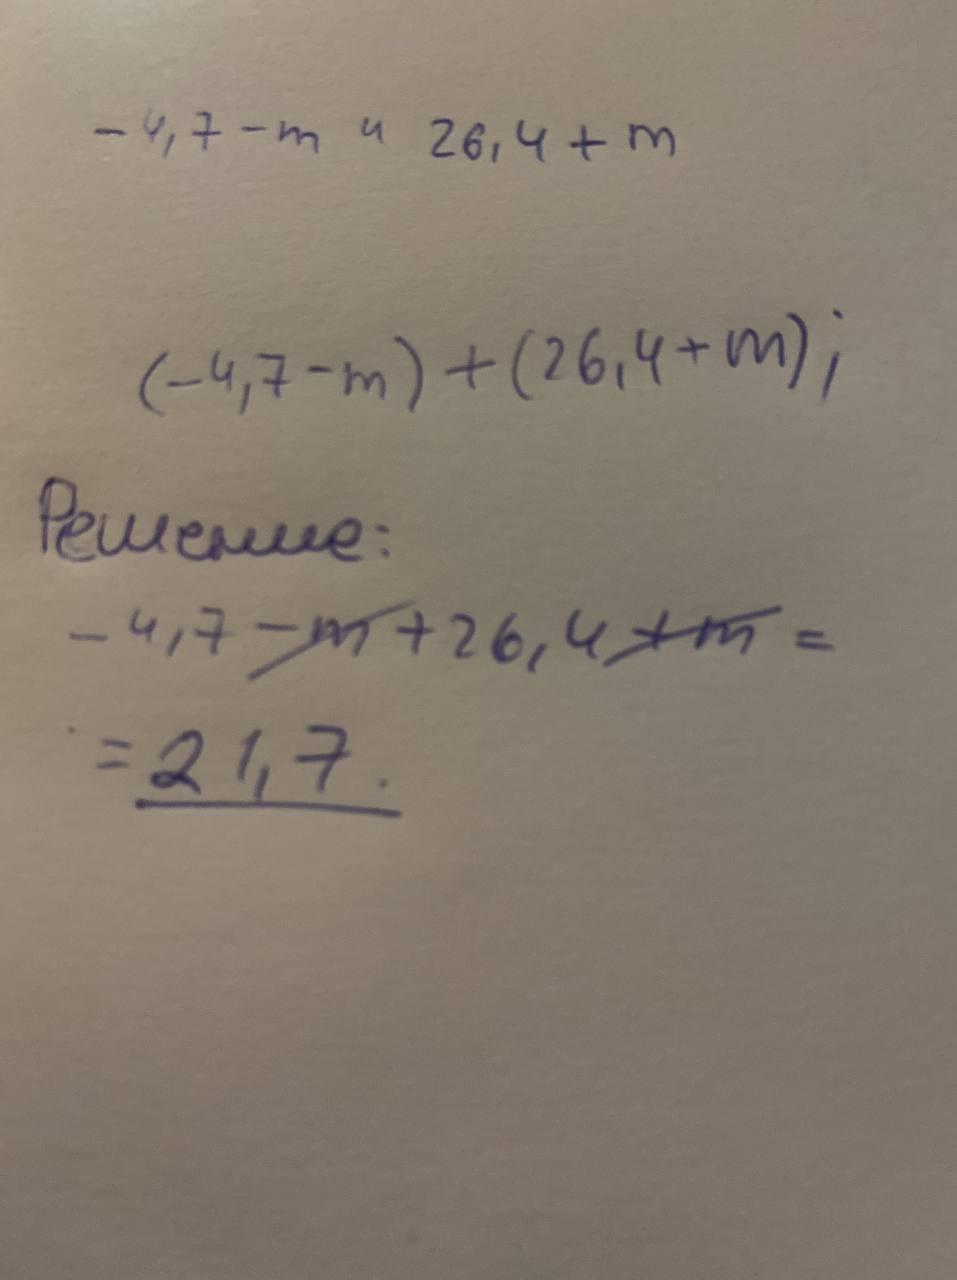 -4,7-m и 26,4+m
(-4,7-m)+(26,4+m);
Решение:
-4,7-m+26,4+m=
=21,7.